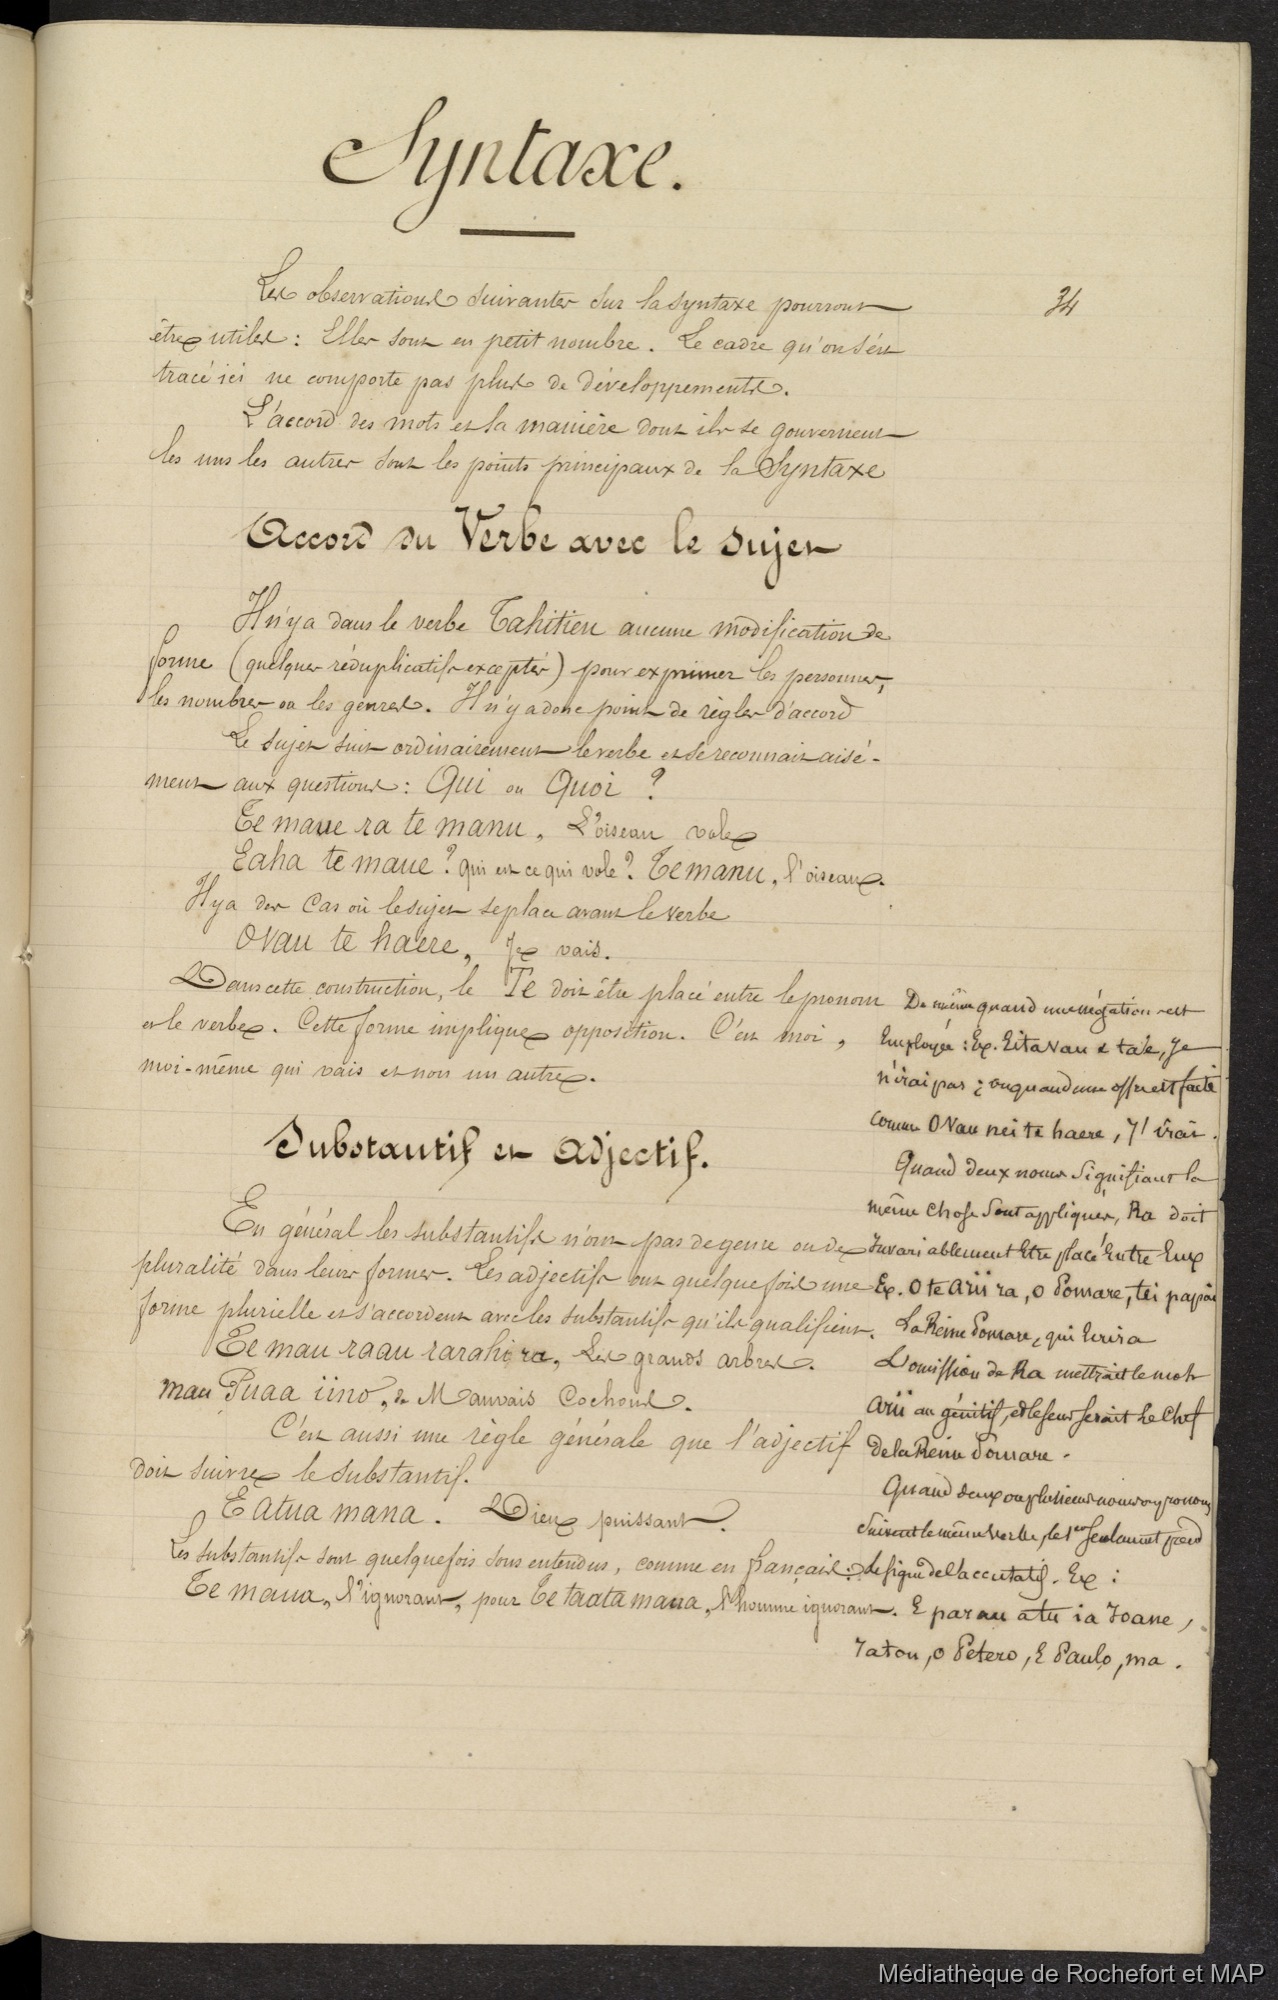 Syntaxe.
34
Les observations suivantes sur la syntaxe pourront
être utiles : Elles sont en petit nombre. Le cadre qu'on s'est
tracé ici ne comporte pas plus de développements.
L'accord des mots et la manière dont ils se gouvernent
les uns les autres sont les points principaux de la Syntaxe
Accord du Verbe avec le sujet
Il n'y a dans le verbe Tahitien aucune modification de
forme (quelques réduplicatifs exceptés) pour exprimer les personnes,
les nombres ou les genres. Il n'y a donc point de règles d'accord
Le sujet suit ordinairement le verbe et se reconnait aisé-
ment aux questions : Qui ou Quoi ?
Te maue ra te manu, L'oiseau vole
Eaha te maue ? qui est ce qui vole ? Te manu, l'oiseau.
Il y a des Cas où le sujet se place avant le verbe
O Vau te haere, Je vais.
Dans cette construction, le Te doit être placé entre le pronom
et le verbe. Cette forme implique opposition. C'est moi,
moi-même qui vais et non un autre.
Substantif et Adjectif.
En général les substantifs n'ont pas de genre ou de
pluralité dans leurs formes. Les adjectifs ont quelquefois une
forme plurielle et s'accordent avec les substantifs qu'ils qualifient.
Te mau raau rarahi ra, Les grands arbres.
mau Puaa iino, de Mauvais Cochons.
C'est aussi une règle générale que l'adjectif
doit suivre le substantif.
E Atua mana. Dieu puissant.
Les substantifs sont quelquefois sous entendus, comme en français :
Te maua, l'ignorant, pour Te taata maua, l'homme ignorant.
De même quand une négation est
Employée : Ex. Eita vau e tae, Je
n'irai pas ; ou quand une offre est faite
comme O Vau nei te haere, J'irai.
Quand deux noms signifiant la
même chose sont appliqués, Ra doit
Invariablement Etre placé Entre Eux
Ex. O te Arii ra, o Pomare, tei papai
La Reine Pomare, qui Ecrira
L'omission de Ra mettrait le mot
Arii au génitif, et le sens serait Le Chef
de la Reine Pomare.
Quand deux ou plusieurs noms ou pronoms
suivent le même verbe, le 1er seulement prend
le signe de l'accusatif. Ex :
E parau atu ia Ioane,
ratou, o Petero, E Paulo, ma.
Médiathèque de Rochefort et MAP